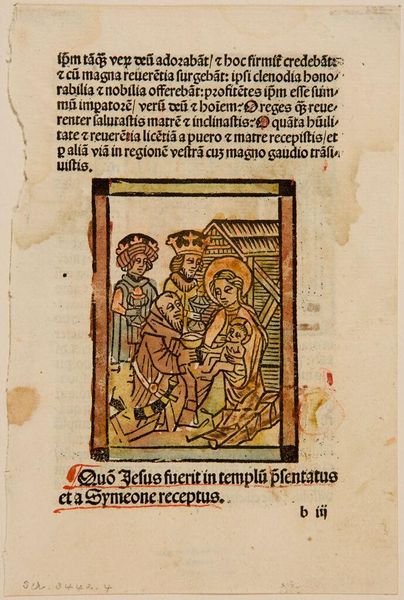 ip̄m tāq̄ȝ veꝝ deū adorabāt/ ⁊ hoc firmit̄ credebāt:
⁊ cū magna reuerētia surgebāt: ipsi clenodia hono-
rabilia ⁊ nobilia offerebāt: profitētes ip̄m esse sum
mū imꝑatorē/ verū deū ⁊ hoīem: O reges q̄ȝ reue-
renter salutastis matrē ⁊ inclinastis: O quāta hūili
tate ⁊ reuerētia licētiā a puero ⁊ matre recepistis/ et
ꝑ aliā viā in regionē vestrā cuȝ magno gaudio trāsi-
uistis.
Quō Jesus fuerit in templū p̄sentatus
et a Symeone receptus.
b iij
Sch. 3442.4